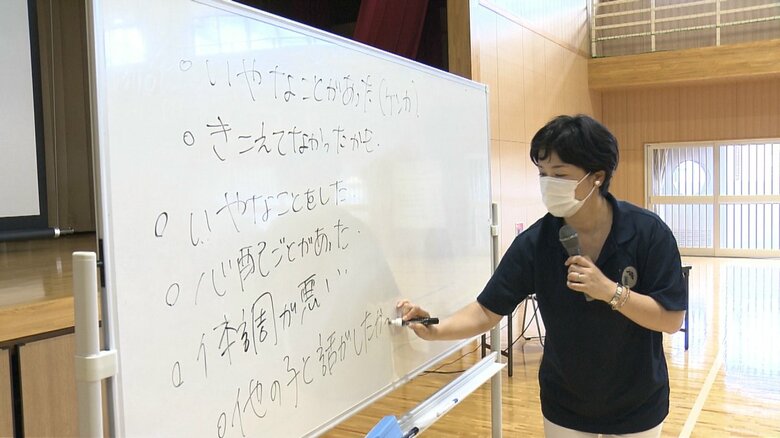 ○いやなことがあった(ケンカ)
○きこえてなかったかも.
○いやなことをした
○心配ごとがあった.
○体調が悪い..
○他の子と話がしたか